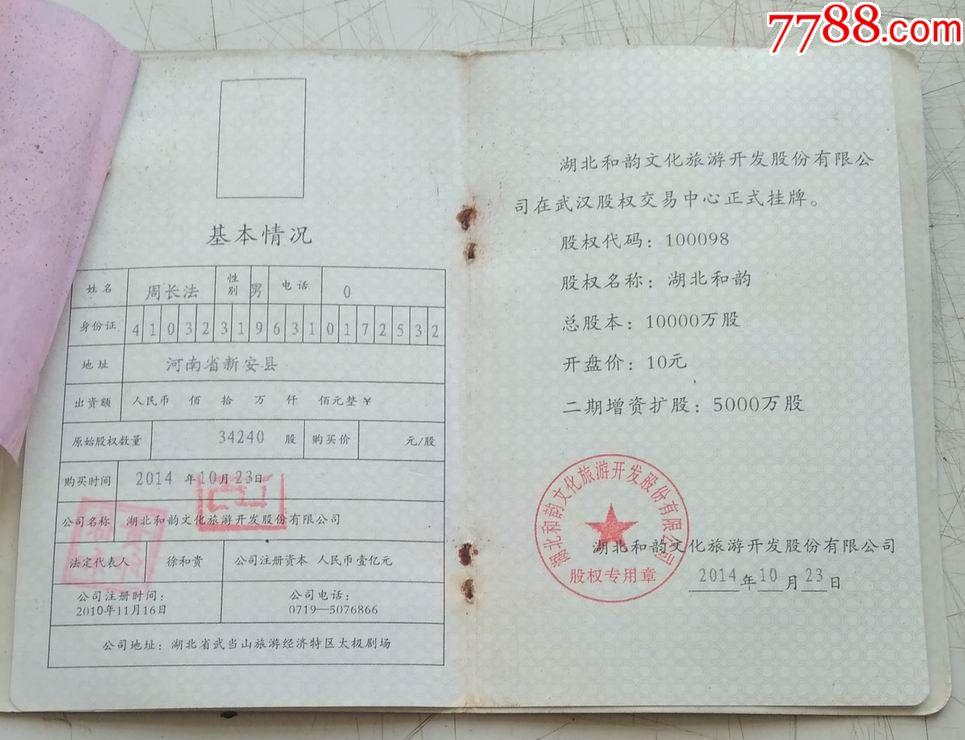 7788.com
基本情况
姓名 周长法 性别 男 电话 0
身份证 410323196310172532
地址 河南省新安县
出资额 人民币 佰 拾 万 仟 佰元整 ¥
原始股权数量 34240 股 购买价 元/股
购买时间 2014 年 10 月 23 日
公司名称 湖北和韵文化旅游开发股份有限公司
法定代表人 徐和贵 公司注册资本 人民币壹亿元
公司注册时间: 2010年11月16日 公司电话: 0719—5076866
公司地址: 湖北省武当山旅游经济特区太极剧场
湖北和韵文化旅游开发股份有限公
司在武汉股权交易中心正式挂牌。
股权代码: 100098
股权名称: 湖北和韵
总股本: 10000万股
开盘价: 10元
二期增资扩股: 5000万股
湖北和韵文化旅游开发股份有限公司
股权专用章
湖北和韵文化旅游开发股份有限公司
2014 年 10 月 23 日